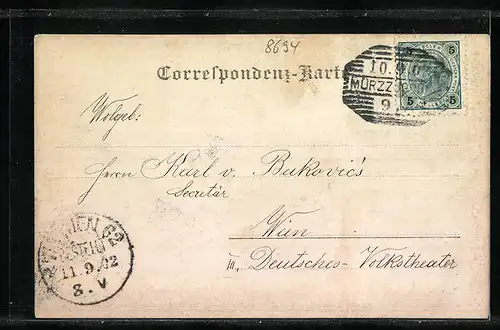 8694
Correspondenz-Karte
10.
MÜRZZ
9
5 5
5 5
Wolgeb:
Herrn Karl v. Bukovič's
Secretär
Wien
III, Deutsches-Volkstheater
WIEN 62
BESTELLT
11.9.02
8.V